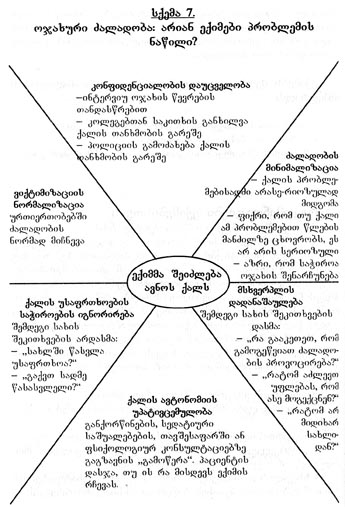 სქემა 7.
ოჯახური ძალადობა: არიან ექიმები პრობლემის
ნაწილი?
კონფიდენციალობის დაუცველობა
–ინტერვიუ ოჯახის წევრების
თანდასწრებით
– კოლეგებთან საკითხის განხილვა
ქალის თანხმობის გარეშე
– პოლიციის გამოძახება ქალის
თანხმობის გარეშე
ძალადობის
მინიმალიზაცია
– ქალის პრობლე-
მებისადმი არასე-რიოზულად
მიდგომა
– ფიქრი, რომ თუ ქალი
ამ პრობლემებით წლების
მანძილზე ცხოვრობს, ეს
არ არის სერიოზული
– აზრი, რომ საჭიროა
ოჯახის შენარჩუნება
ვიქტიმიზაციის
ნორმალიზაცია
ურთიერთობებში
ძალადობის
ნორმად მიჩნევა
ექიმმა შეიძლება
ავნოს ქალს
მსხვერპლის
დადანაშაულება
შემდეგი სახის შეკითხვების
დასმა:
– „რა გააკეთეთ, რომ
გამოგეწვიათ ძალადო-
ბის პროვოცირება?“
– „რატომ აძლევთ
უფლებას, რომ
ასე მოგექცნენ?“
– „რატომ არ
მიდიხარ
სახლი-
დან?“
ქალის უსაფრთხოების
საჭიროების იგნორირება
შემდეგი სახის
შეკითხვების არდასმა:
– „სახლში წასვლა
უსაფრთხოა?“
– „გაქვთ სადმე
წასასვლელი?“
ქალის ავტონომიის
უპატივცემულობა
განქორწინების, სედატიური
საშუალებების, თავშესაფარში ან
ფსიქოლოგიურ კონსულტაციებზე
გაგზავნის „გამოწერა“. პაციენტის
დასჯა, თუ ის რა მისდევს ექიმის
რჩევას.